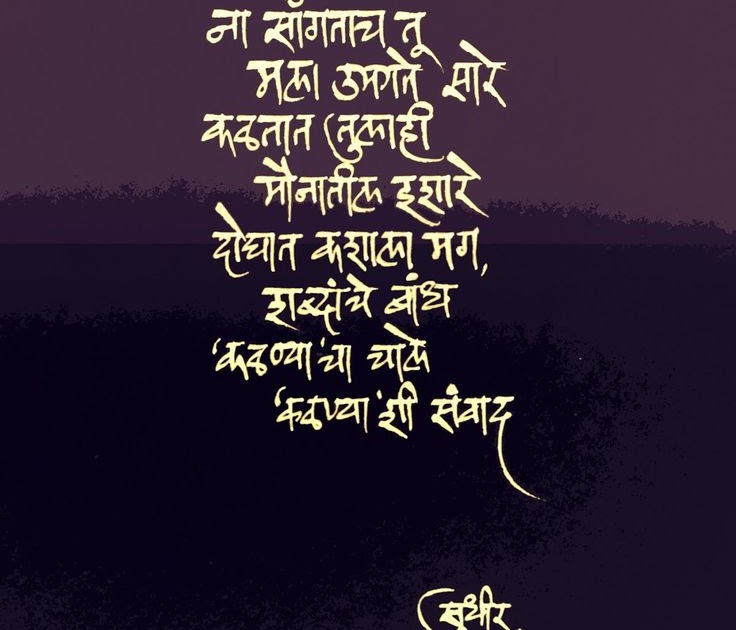 ना सांगताच तू
मला उमगते सारे
कळतात तुलाही
मौनातील इशारे
दोघात कशाला मग,
शब्दांचे बांध
'कळण्या'चा चाले
'कळण्या'शी संवाद
सुधीर